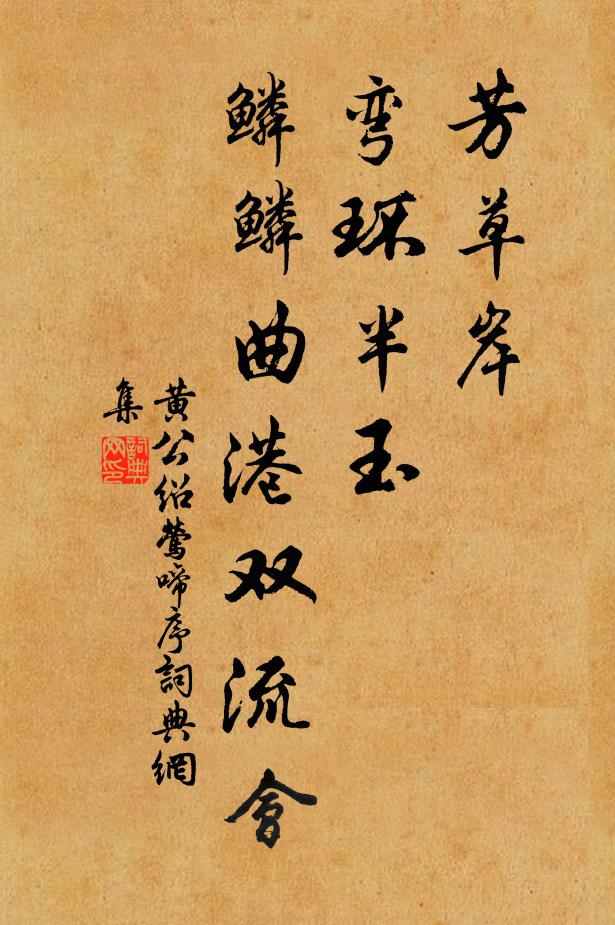 芳草岸
弯环半玉
鳞鳞曲港双流會
黄公绍莺啼序詞典網
集
詞典
网印